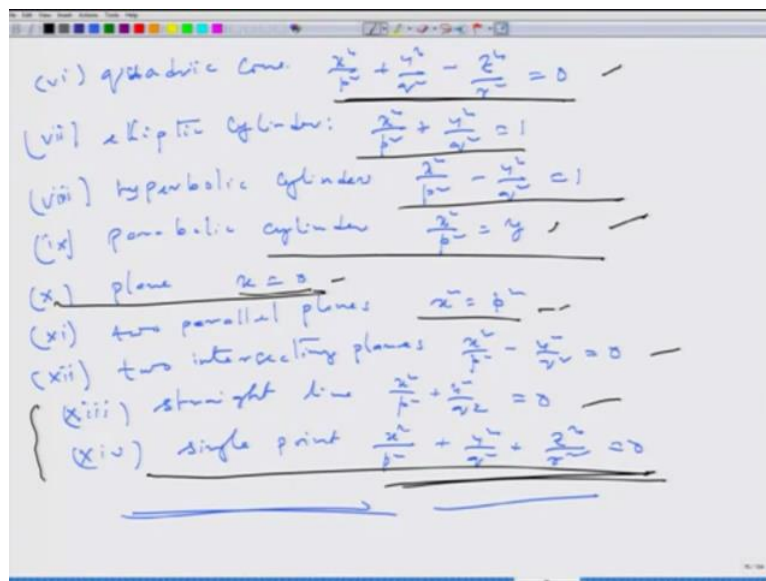 (vi) quadric cone. x²/p² + y²/q² - z²/r² = 0
(vii) elliptic cylinder: x²/p² + y²/q² = 1
(viii) hyperbolic cylinder x²/p² - y²/q² = 1
(ix) parabolic cylinder x²/p² = y,
(x) plane x = 0
(xi) two parallel planes x² = p²
(xii) two intersecting planes x²/p² - y²/q² = 0
(xiii) straight line x²/p² + y²/q² = 0
(xiv) single point x²/p² + y²/q² + z²/r² = 0